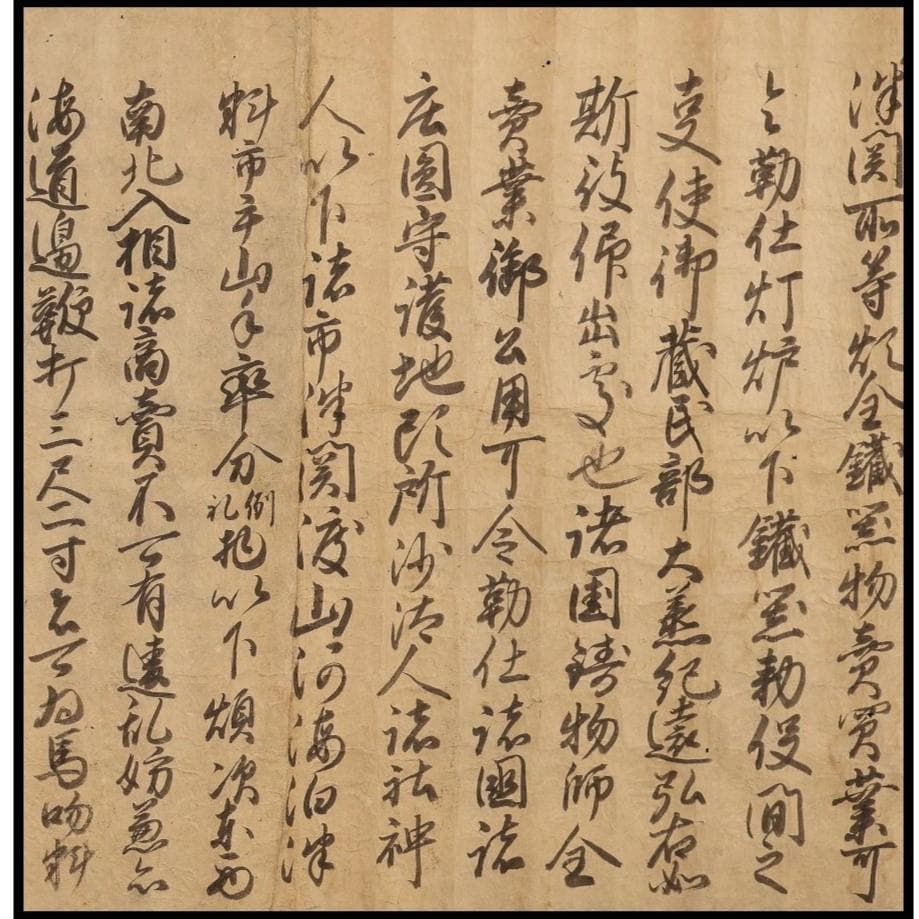 津関所等煩全鐵器物賣買業可
令勤仕灯炉以下鐵器勅役間之
使御蔵民部大丞紀遠弘右如
斯被仰出處也諸国鋳物師全
賣業御公用可令勤仕諸国諸
庄園守護地頭所沙汰人諸社神
人以下諸市津関渡山河海泊津
料市手山手率分例礼物以下煩次東西
南北入相諸商賣不可有違乱妨兼亦
海道邊鞭打三尺二寸者可為馬吻料